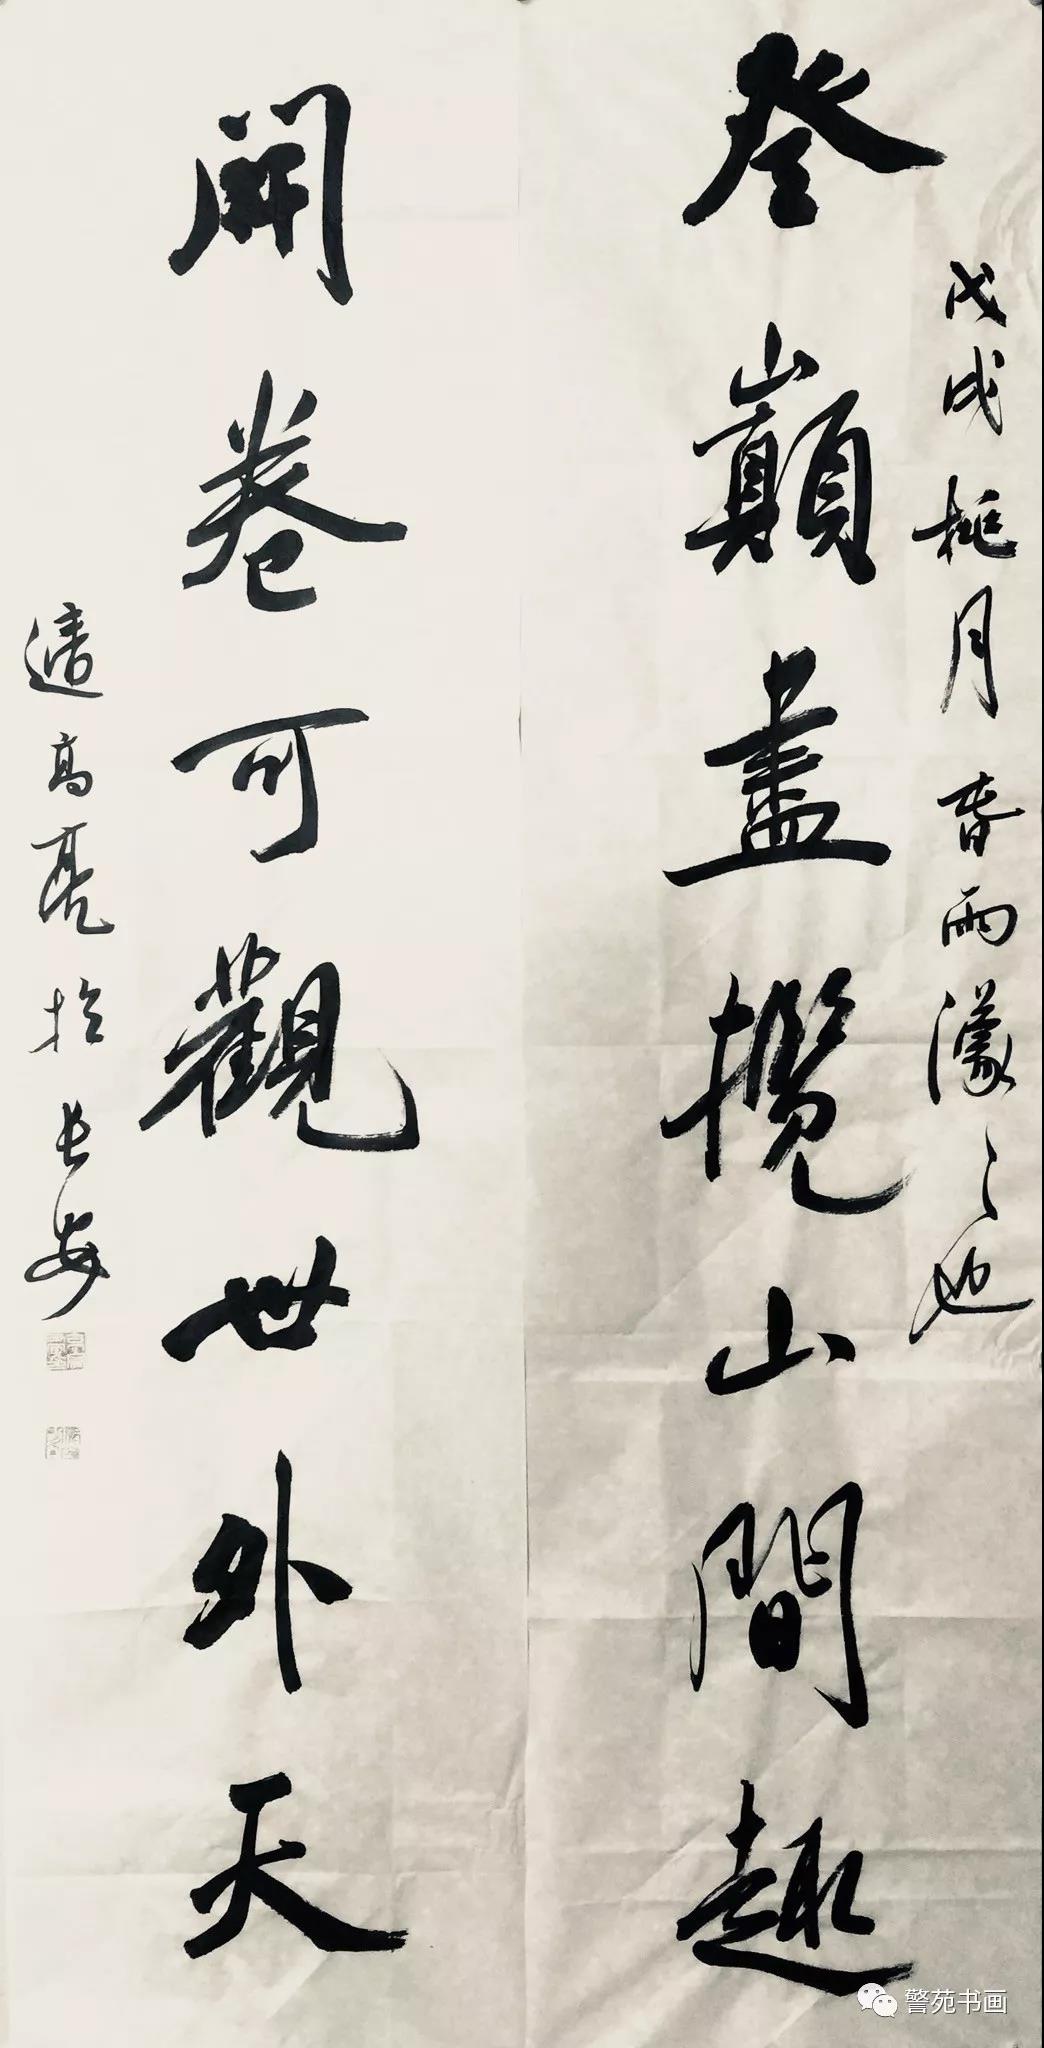 戊戌桃月春雨濛々也
登巔盡攬山間趣
開卷可觀世外天
高亮於長安
警苑书画